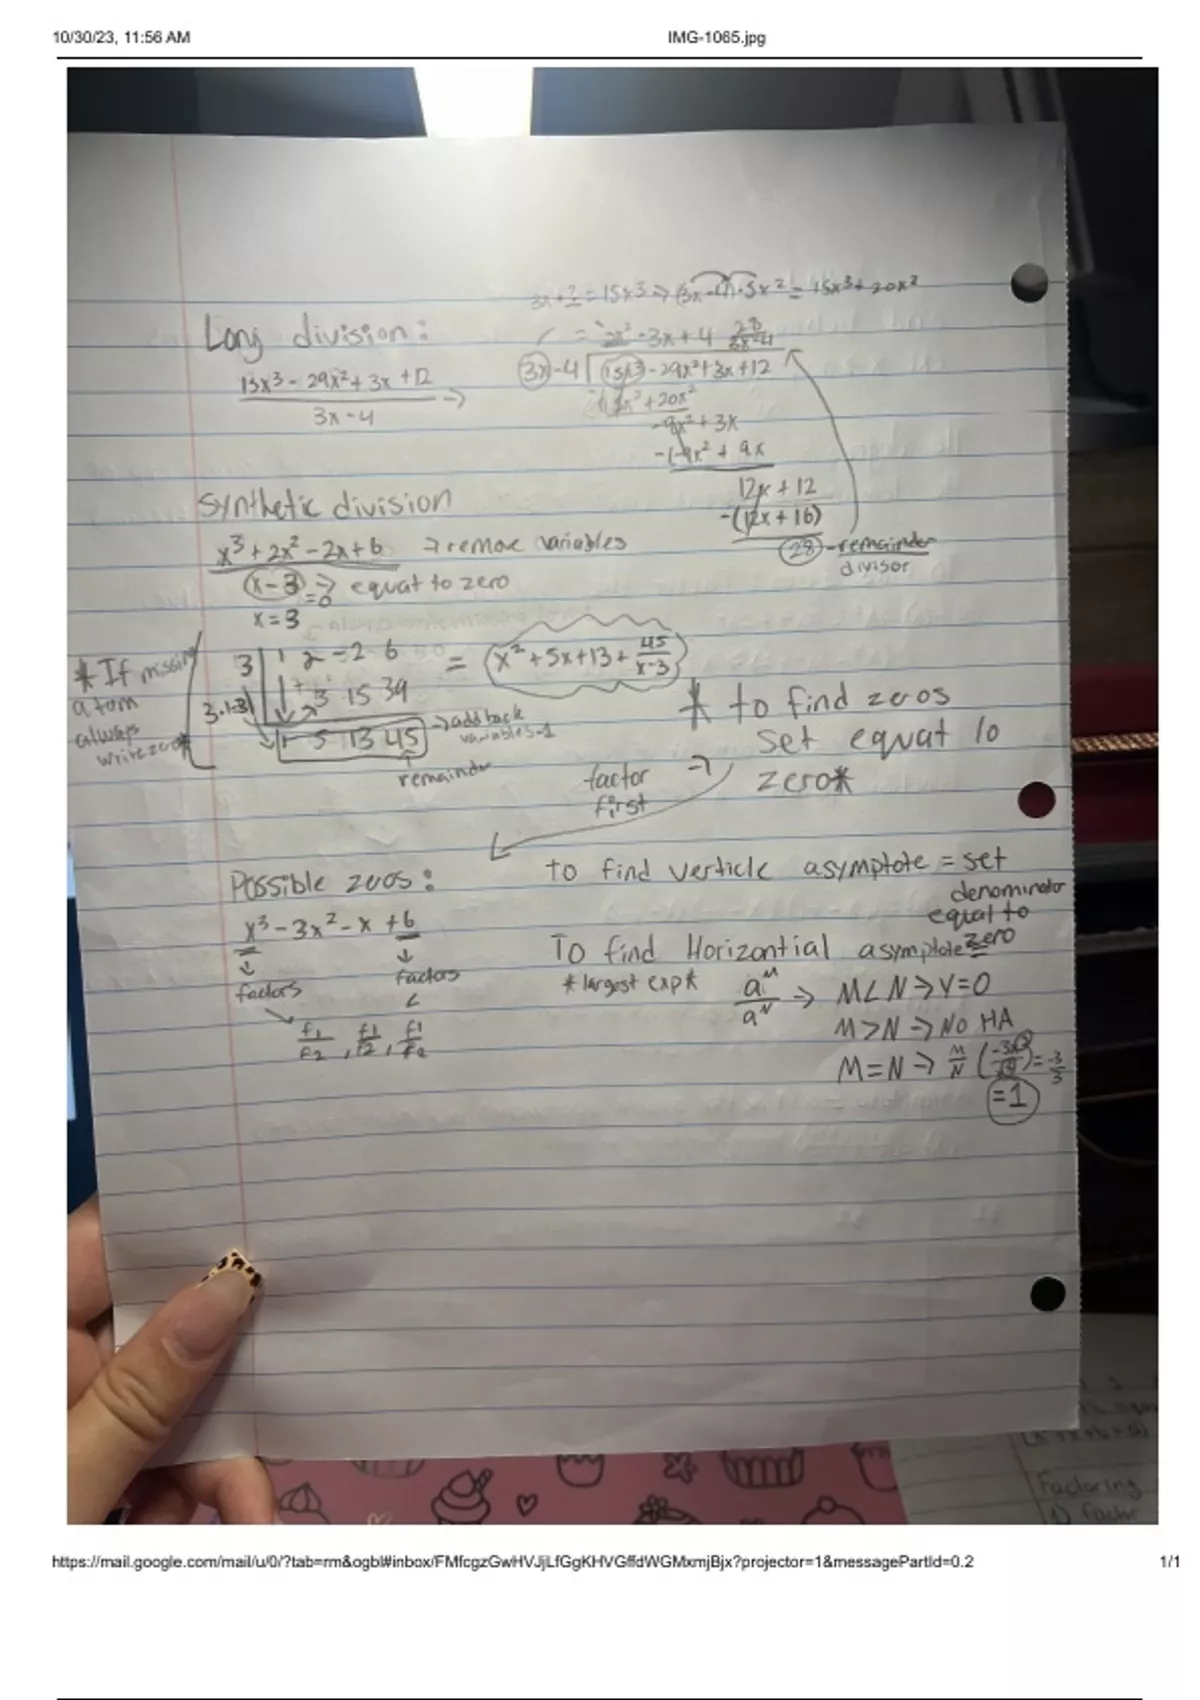 10/30/23, 11:56 AM
IMG-1065.jpg
(3x-4)·5x² = 15x³+20x²
Long division:
= -3x+4 28/3x-4
15x³ - 29x² + 3x + 12
3x-4
3x-4 15x³ - 29x² + 3x + 12
+20x²
-9x² + 3x
-(-9x² + 9x
12x + 12
-(12x + 16)
28 - remainder
divisor
Synthetic division
x³ + 2x² - 2x + 6 → remove variables
x-3 => equat to zero
=0
x = 3
* If missing
a tom
always
write zero*
3 1 2 -2 6
3·1=3 + 3 15 39
1 5 13 45
= x² + 5x + 13 + 45/x-3
→ add back
variables-1
remainder
* to find zeros
set equat to
zero*
factor
first
Possible zeros:
x³ - 3x² - x + 6
factors factors
f1/f2, f1/f2, f1/f2
to find verticle asymptote = set
denominator
equal to
zero
To find Horizontial asymptote =
*largest exp*
a^M/a^N → M<N → Y=0
M>N → NO HA
M=N → M/N = -3/3
=1
Factoring
1) factor
https://mail.google.com/mail/u/0/?tab=rm&ogbl#inbox/FMfcgzGwHVJjLfGgKHVGffdWGMxmjBjx?projector=1&messagePartId=0.2
1/1